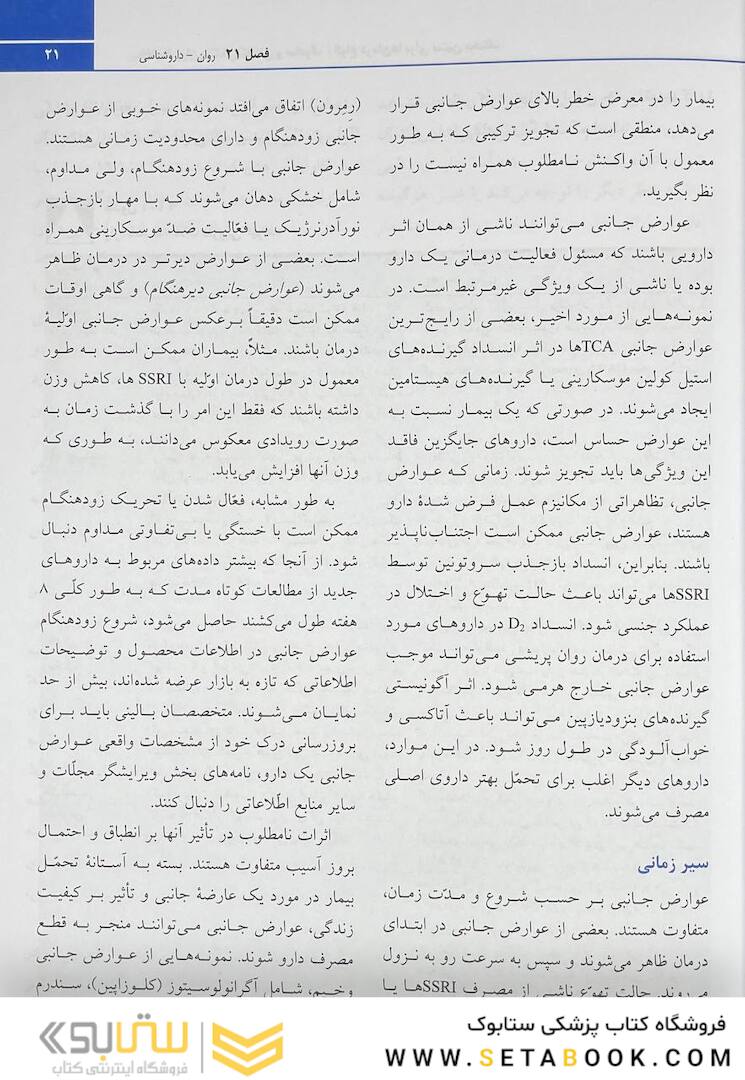 فصل ۲۱ روان - داروشناسی
۲۱
بیمار را در معرض خطر بالای عوارض جانبی قرار
می‌دهد، منطقی است که تجویز ترکیبی که به طور
معمول با آن واکنش نامطلوب همراه نیست را در
نظر بگیرید.
عوارض جانبی می‌توانند ناشی از همان اثر
دارویی باشند که مسئول فعالیت درمانی یک دارو
بوده یا ناشی از یک ویژگی غیرمرتبط است. در
نمونه‌هایی از مورد اخیر، بعضی از رایج‌ترین
عوارض جانبی TCAها در اثر انسداد گیرنده‌های
استیل کولین موسکارینی یا گیرنده‌های هیستامین
ایجاد می‌شوند. در صورتی که یک بیمار نسبت به
این عوارض حساس است، داروهای جایگزین فاقد
این ویژگی‌ها باید تجویز شوند. زمانی که عوارض
جانبی، تظاهراتی از مکانیزم عمل فرض شدهٔ دارو
هستند، عوارض جانبی ممکن است اجتناب‌ناپذیر
باشند. بنابراین، انسداد بازجذب سروتونین توسط
SSRIها می‌تواند باعث حالت تهوّع و اختلال در
عملکرد جنسی شود. انسداد D2 در داروهای مورد
استفاده برای درمان روان پریشی می‌تواند موجب
عوارض جانبی خارج هرمی شود. اثر آگونیستی
گیرنده‌های بنزودیازپین می‌تواند باعث آتاکسی و
خواب‌آلودگی در طول روز شود. در این موارد،
داروهای دیگر اغلب برای تحمّل بهتر داروی اصلی
مصرف می‌شوند.
سیر زمانی
عوارض جانبی بر حسب شروع و مدّت زمان،
متفاوت هستند. بعضی از عوارض جانبی در ابتدای
درمان ظاهر می‌شوند و سپس به سرعت رو به نزول
می‌روند. حالت تهوّع ناشی از مصرف SSRIها یا
(رِمِرون) اتفاق می‌افتد نمونه‌های خوبی از عوارض
جانبی زودهنگام و دارای محدودیت زمانی هستند.
عوارض جانبی با شروع زودهنگام، ولی مداوم،
شامل خشکی دهان می‌شوند که با مهار بازجذب
نورآدرنرژیک یا فعّالیت ضدّ موسکارینی همراه
است. بعضی از عوارض دیرتر در درمان ظاهر
می‌شوند (عوارض جانبی دیرهنگام) و گاهی اوقات
ممکن است دقیقاً برعکس عوارض جانبی اوّلیهٔ
درمان باشند. مثلاً، بیماران ممکن است به طور
معمول در طول درمان اوّلیه با SSRI ها، کاهش وزن
داشته باشند که فقط این امر را با گذشت زمان به
صورت رویدادی معکوس می‌دانند، به طوری که
وزن آنها افزایش می‌یابد.
به طور مشابه، فعّال شدن یا تحریک زودهنگام
ممکن است با خستگی یا بی‌تفاوتی مداوم دنبال
شود. از آنجا که بیشتر داده‌های مربوط به داروهای
جدید از مطالعات کوتاه مدت که به طور کلّی ۸
هفته طول می‌کشند حاصل می‌شود، شروع زودهنگام
عوارض جانبی در اطلاعات محصول و توضیحات
اطلاعاتی که تازه به بازار عرضه شده‌اند، بیش از حد
نمایان می‌شوند. متخصصان بالینی باید برای
بروزرسانی درک خود از مشخصات واقعی عوارض
جانبی یک دارو، نامه‌های بخش ویرایشگر مجلّات و
سایر منابع اطّلاعاتی را دنبال کنند.
اثرات نامطلوب در تأثیر آنها بر انطباق و احتمال
بروز آسیب متفاوت هستند. بسته به آستانهٔ تحمّل
بیمار در مورد یک عارضهٔ جانبی و تأثیر بر کیفیت
زندگی، عوارض جانبی می‌توانند منجر به قطع
مصرف دارو شوند. نمونه‌هایی از عوارض جانبی
وخیم، شامل آگرانولوسیتوز (کلوزاپین)، سندرم
فروشگاه کتاب پزشکی ستابوک
WWW.SETABOOK.COM
ستابوک
فروشگاه اینترنتی کتاب